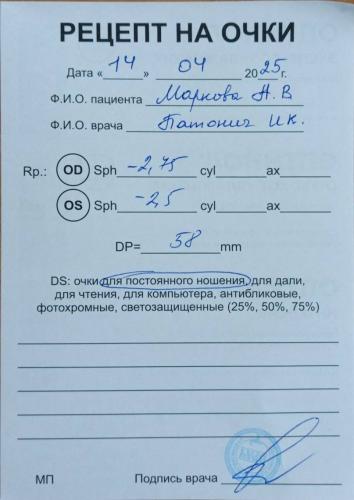 РЕЦЕПТ НА ОЧКИ
Дата «14» 04 2025г.
Ф.И.О. пациента Маркова Н.В
Ф.И.О. врача И.К.
Rp.: OD Sph -2,75 cyl ax
OS Sph -2,5 cyl ax
DP= 58 mm
DS: очки для постоянного ношения, для дали,
для чтения, для компьютера, антибликовые,
фотохромные, светозащищенные (25%, 50%, 75%)
МП Подпись врача